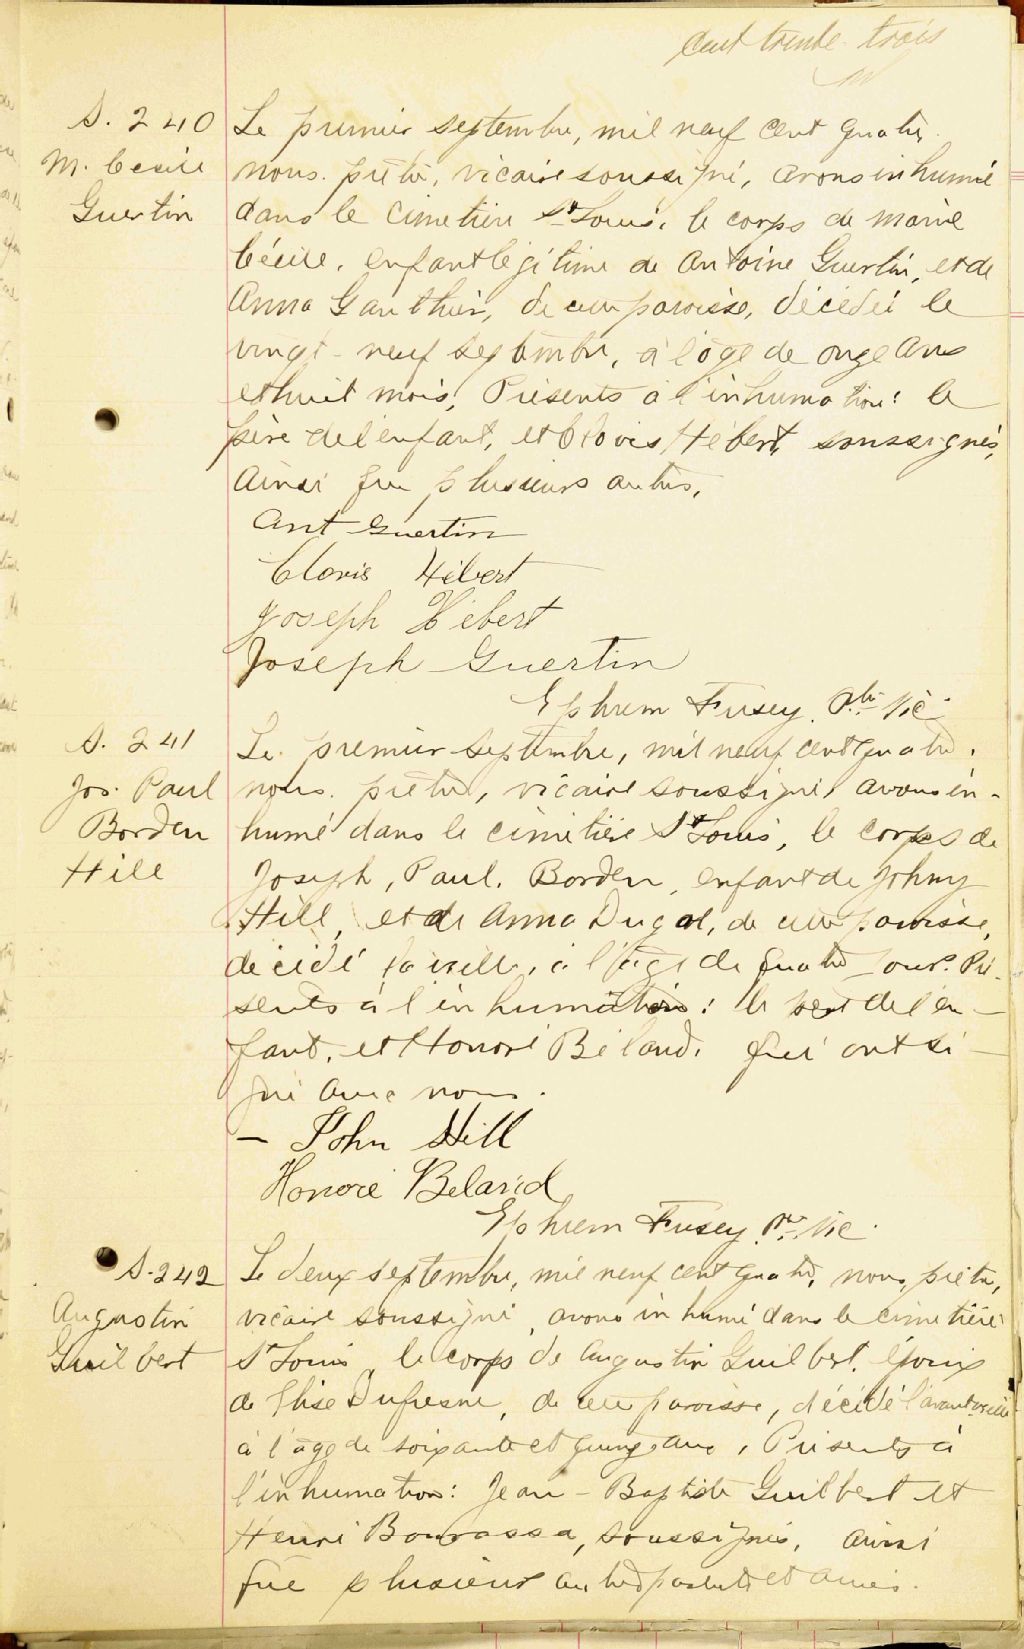 cent trente-trois
S. 240
M. Cecile
Guertin
Le premier septembre, mil neuf cent quatre
nous prêtre, vicaire soussigné, avons inhumé
dans le cimetière St Louis, le corps de Marie
Cécile, enfant légitime de Antoine Guertin, et de
Anna Gauthier, de cette paroisse, décédée le
vingt-neuf septembre, à l'âge de onze ans
et huit mois, Présents à l'inhumation: le
père de l'enfant, et Clovis Hébert, soussignés,
ainsi que plusieurs autres.
Ant Guertin
Clovis Hébert
Joseph Hebert
Joseph Guertin
Ephrem Fusey. Ptre Vic.
S. 241
Jos. Paul
Borden
Hill
Le premier septembre, mil neuf cent quatre,
nous prêtre, vicaire soussigné avons in-
humé dans le cimetière St Louis, le corps de
Joseph, Paul, Borden, enfant de Johny
Hill, et de Anna Dugal, de cette paroisse,
décédé la veille, à l'âge de quatre jours. Pré-
sents à l'inhumation: le père de l'en-
fant, et Honoré Béland, qui ont si-
gné avec nous.
- John Hill
Honoré Beland
Ephrem Fusey. Ptre Vic.
S. 242
Augustin
Guilbert
Le deux septembre, mil neuf cent quatre, nous, prêtre,
vicaire soussigné, avons inhumé dans le cimetière
St Louis, le corps de Augustin Guilbert, époux
de Elise Dufresne, de cette paroisse, décédé l'avant veille
à l'âge de soixante et quinze ans, Présents à
l'inhumation: Jean-Baptiste Guilbert et
Henri Bourassa, soussignés, ainsi
que plusieurs autres parents et amis.